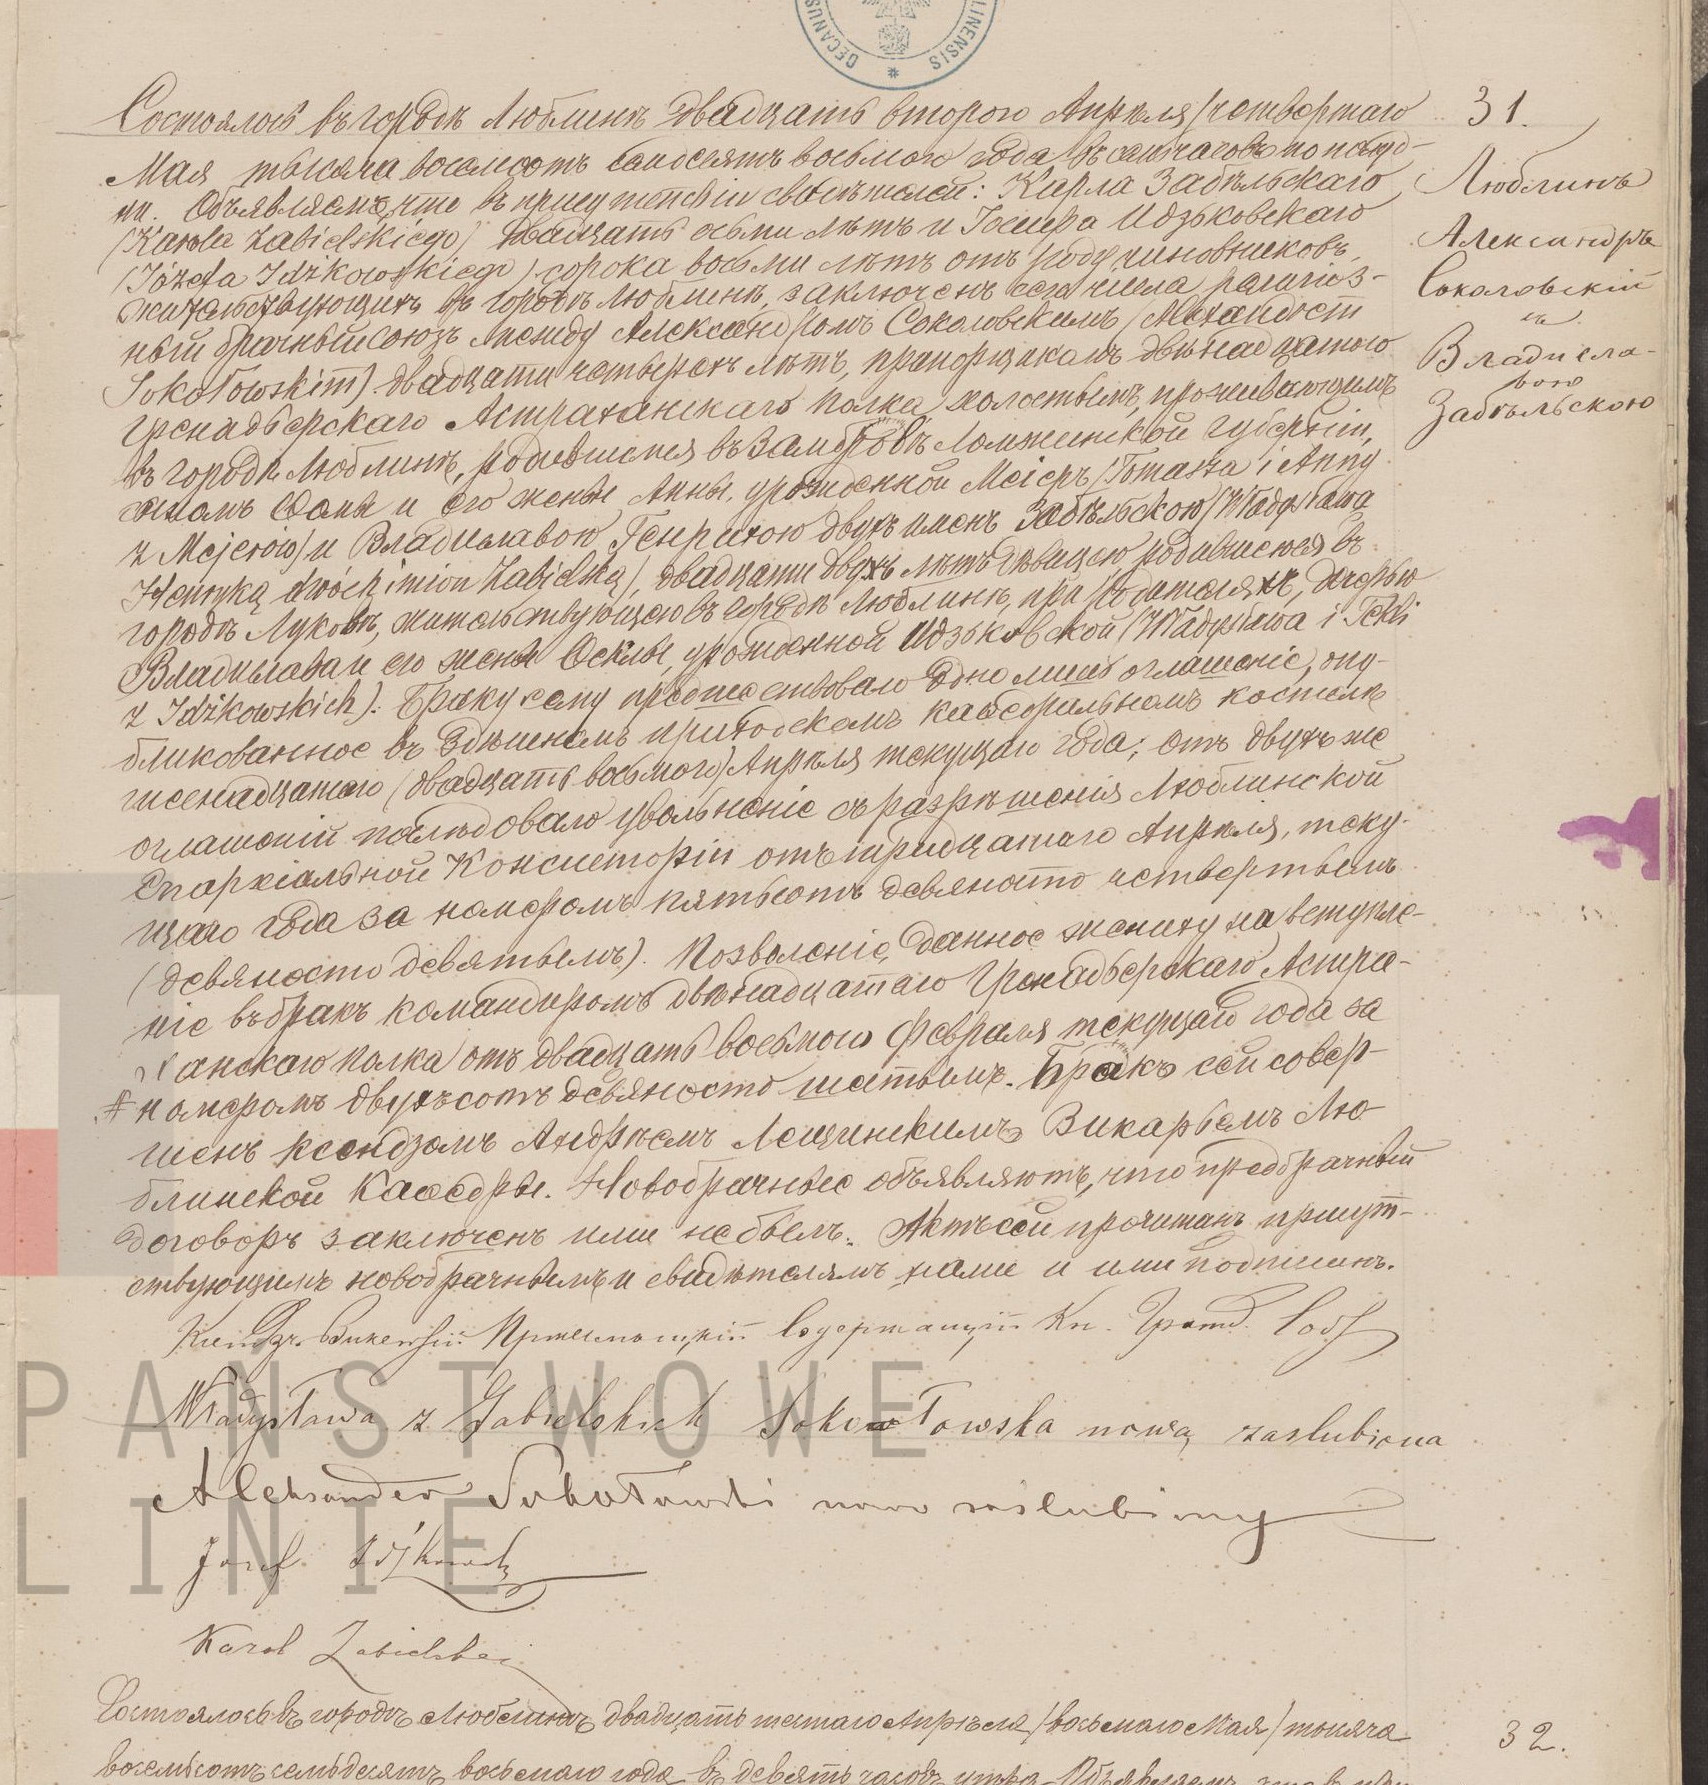 DECANUS LINENSIS
Состоялось въ городѣ Люблинѣ двадцать второго Апрѣля /четвертаго 31.
Мая тысяча восемсотъ семдесятъ восьмого года въ семь часовъ по полуд-
ни. Объявляемъ, что въ присутствіи свидѣтелей: Карла Забѣльскаго
Люблинъ
(Karola Zabielskiego) двадцать осьми лѣтъ и Іосифа Идзьковскаго
Александръ
(Józefa Idźkowskiego) сорока восьми лѣтъ отъ роду, чиновниковъ,
жительствующихъ въ городѣ Люблинѣ, заключенъ сего числа религіоз-
Соколовскій
ный брачный союзъ между Александромъ Соколовскимъ (Alexandrem
и
Sokołowskim) двадцати четырехъ лѣтъ, прапорщикомъ двѣнадцатого
Владисла-
Гренадьерскаго Астраханскаго полка, холостымъ, проживающимъ
вою
въ городѣ Люблинѣ, родившимся въ Замбровѣ Ломжинской губерніи,
Забѣльскою
сыномъ Ѳомы и его жены Анны, урожденной Меіеръ (Tomasza i Anny
z Mejerów) и Владиславою Генрикою двухъ именъ Забѣльскою (Władysławą
Henryką dwóch imion Zabielską), двадцати двухъ лѣтъ дѣвицею родившеюся въ
городѣ Луковѣ, жительствующею въ городѣ Люблинѣ, при родителяхъ, дочерью
Владислава и его жены Ѳеклы, урожденной Идзьковской (Władysława i Tekli
z Idźkowskich). Браку сему предшествовало одно лишь оглашеніе, опу-
бликованное въ здѣшнемъ приходскомъ каѳедральномъ костелѣ
шеснадцатого (двадцать восьмого) Апрѣля текущаго года; отъ двухъ же
оглашеній послѣдовало увольненіе съ разрѣшенія Люблинской
Епархіальной Консисторіи отъ тридцатаго Апрѣля, теку-
щаго года за номеромъ пятьсотъ девяносто четвертымъ
(девяносто девятымъ). Позволеніе, данное жениху на вступле-
ніе въ бракъ командиромъ двѣнадцатаго Гренадьерскаго Астра-
ханскаго полка отъ двадцать восьмого Февраля текущаго года за
# номеромъ двухъсотъ девяносто шестымъ. Бракъ сей совер-
шенъ ксендзомъ Андреемъ Лещинскимъ Викарьемъ Лю-
блинской Каѳедры. Новобрачные объявляютъ, что предбрачный
договоръ заключенъ ими не былъ. Актъ сей прочитанъ присут-
ствующимъ новобрачнымъ и свидѣтелямъ нами и ими подписанъ.
Ксендзъ Содержащій Кн. Гражд. Сост
Władysława z Zabielskich Sokołowska nowo zaslubiona
Aleksander Sokołowski nowo zaslubiony
Józef Idźkowski
Karol Zabielski
PAŃSTWOWE
LINIE
Состоялось въ городѣ Люблинѣ двадцать шестаго Апрѣля /восьмаго Мая/ тысяча 32.
восемьсотъ семьдесятъ восьмаго года въ девять часовъ утра. Объявляемъ, что въ при